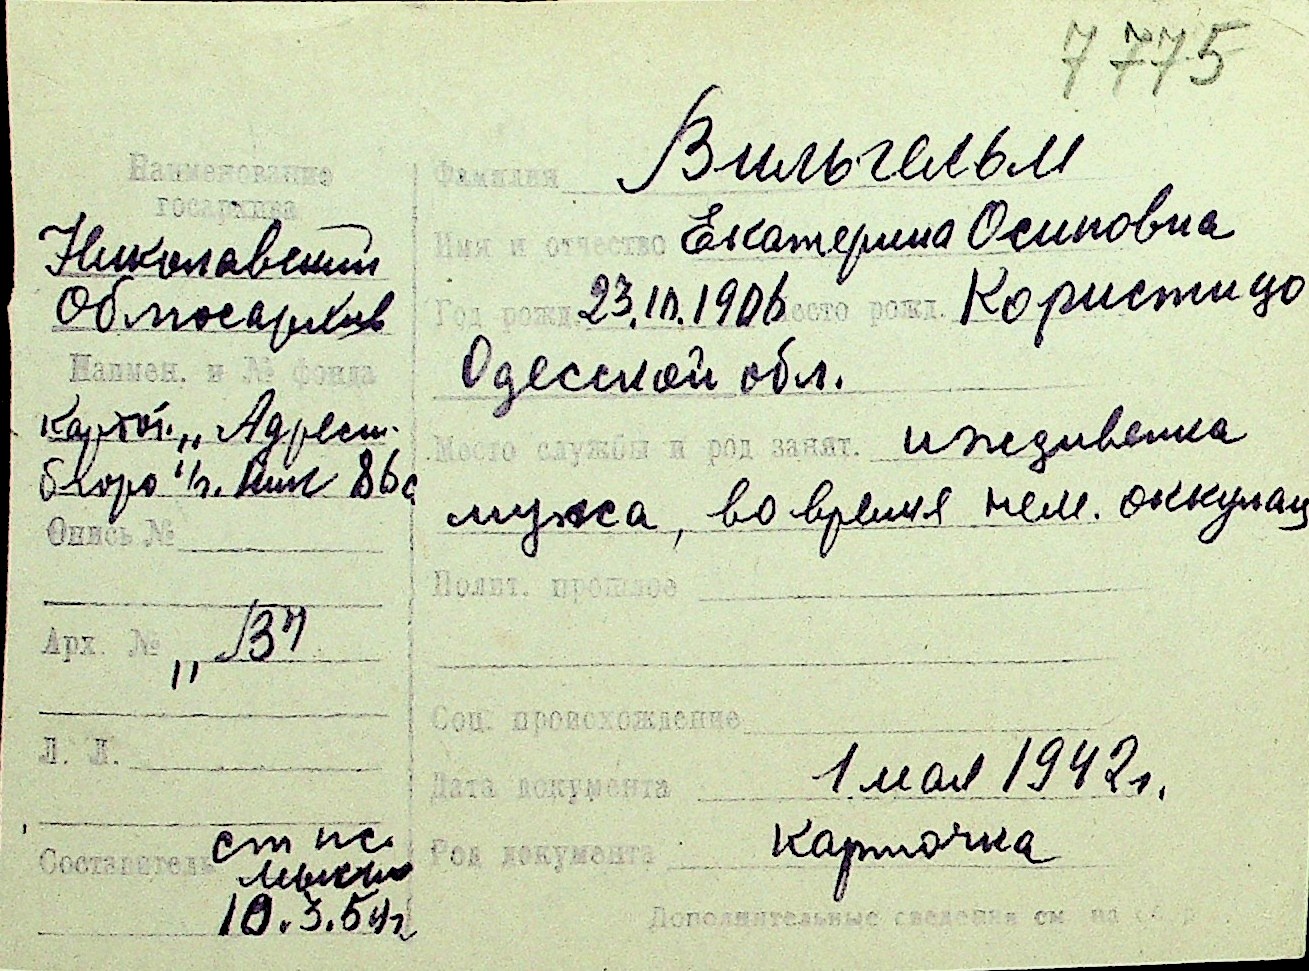 7775
Наименование
госархива
Николаевский
Облгосархив
Наимен. и № фонда
Картот. „Адресн.
бюро" г. Ник 86с
Опись №
Арх. № „ В"
Л. Л.
Составитель ст нс.
10.3.54г
Фамилия Вильгельм
Имя и отчество Екатерина Осиповна
Год рожд. 23.III.1906 Место рожд.
Одесской обл.
Место службы и род занят. иждивенка
мужа, во время нем. оккупац
Полит. прошлое
Соц. происхождение
Дата документа 1 мая 1942г.
Род документа карточка
Дополнительные сведения см на об р